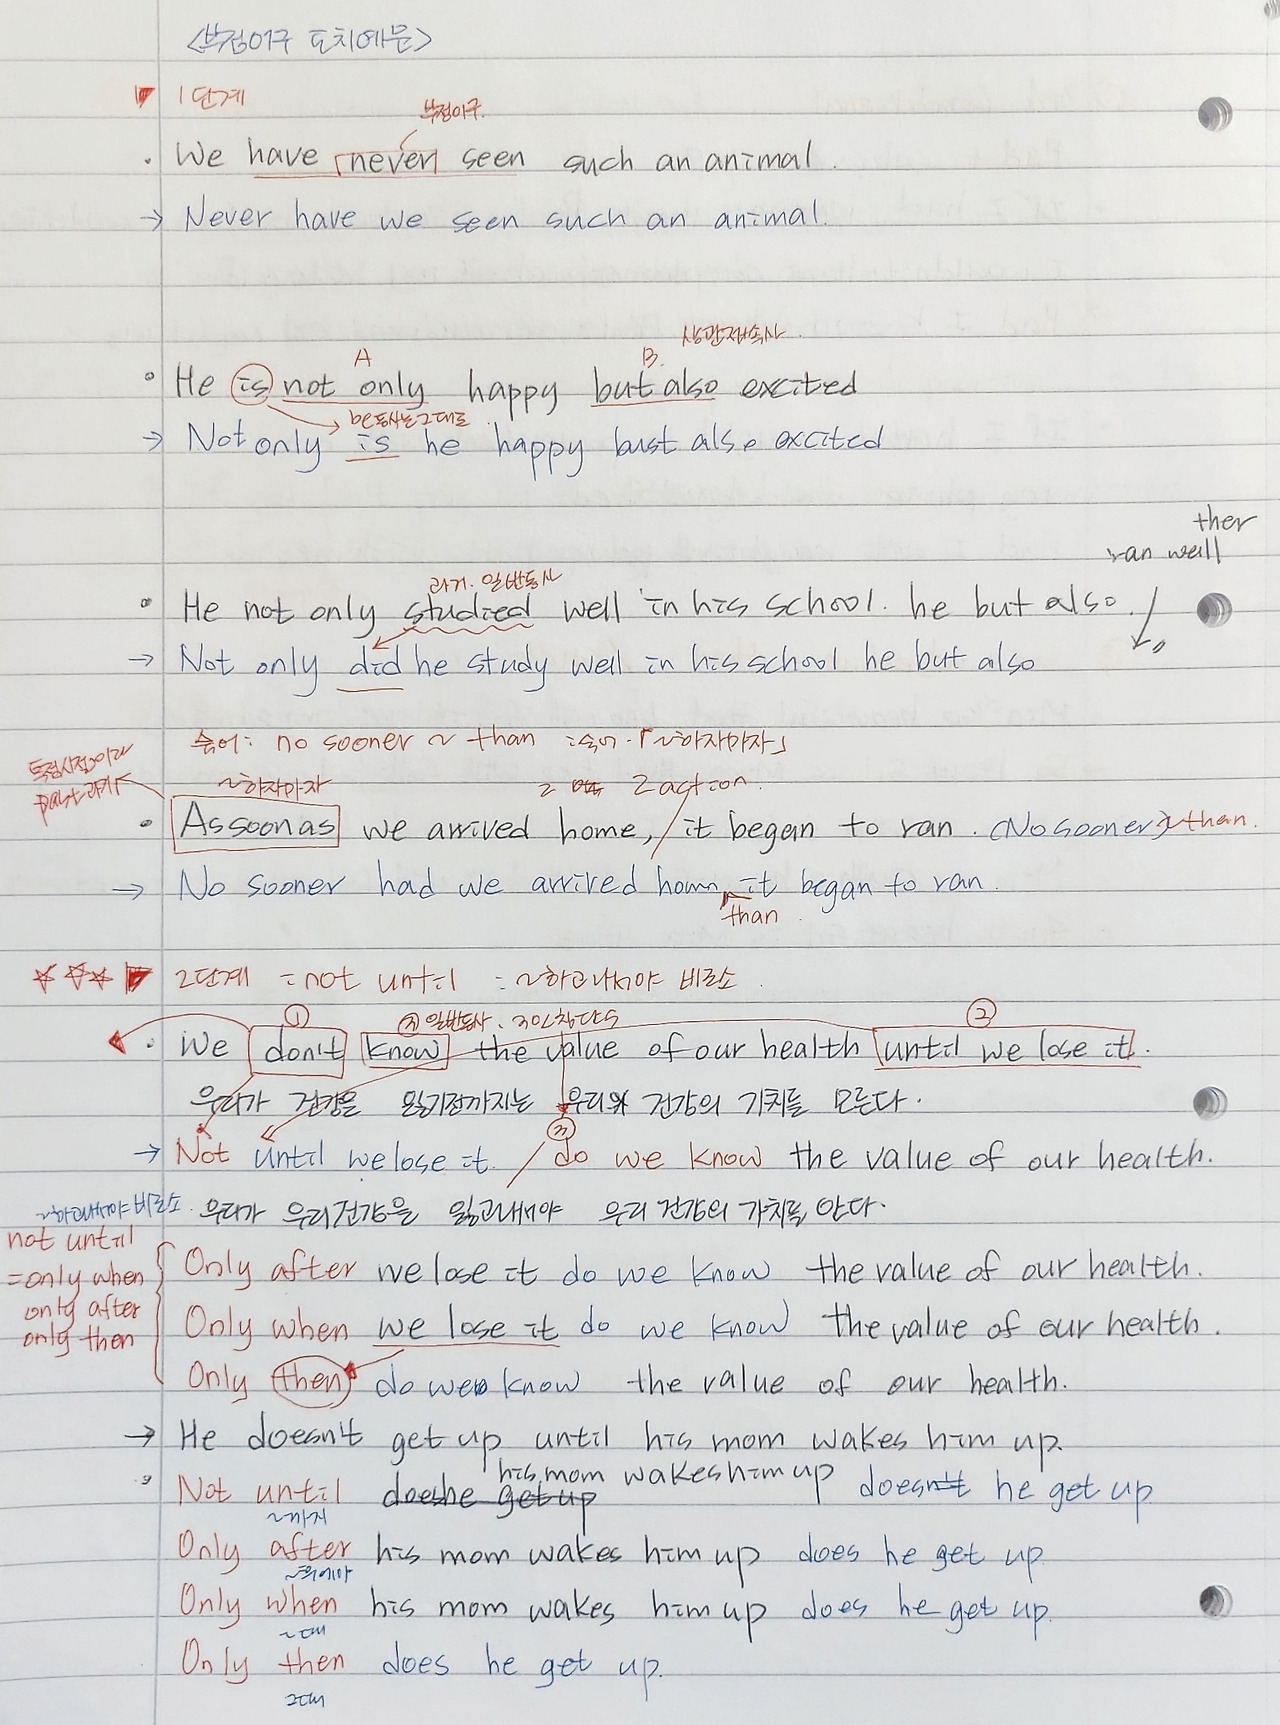 <부정어구 도치예문>
1단계
부정어구.
We have never seen such an animal.
→ Never have we seen such an animal.
상관접속사.
A B.
He is not only happy but also excited
be동사는 그대로
→ Not only is he happy bust also excited
ther
ran well
과거. 일반동사
He not only studied well in his school. he but also.
→ Not only did he study well in his school he but also
숙어: no sooner ~ than :숙어.「~하자마자」
~하자마자 2 2 action.
As soon as we arrived home, / it began to ran. (No sooner) ~ than.
→ No sooner had we arrived hom it began to ran.
than
2단계 = not until : ~하고나서야 비로소.
① ③ 일반동사. 3인칭단수 ②
We don't know the value of our health until we lose it.
우리가 건강을 잃기전까지는 우리의 건강의 가치를 모른다.
③
→ Not until we lose it. / do we know the value of our health.
~하고나서야 비로소. 우리가 우리건강을 잃고나서야 우리 건강의 가치를 안다.
not until
=only when
only after
only then
Only after we lose it do we know the value of our health.
Only when we lose it do we know the value of our health.
Only then do we know the value of our health.
→ He doesn't get up until his mom wakes him up.
his mom wakes him up
Not until doeshe get up doesn't he get up
~까지
Only after his mom wakes him up does he get up.
~후에야
Only when his mom wakes him up does he get up.
~때
Only then does he get up.
그때